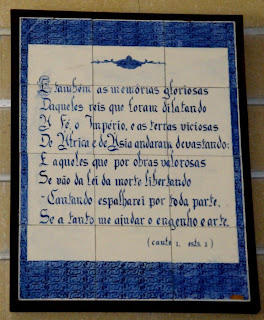 E também as memórias gloriosas
Daqueles reis que foram dilatando
A Fé, o Império, e as terras viciosas
De África e de Ásia andaram devastando;
E aqueles que por obras valorosas
Se vão da lei da morte libertando
-Cantando espalharei por toda parte,
Se a tanto me ajudar o engenho e arte.
(canto 1, estr. 2)